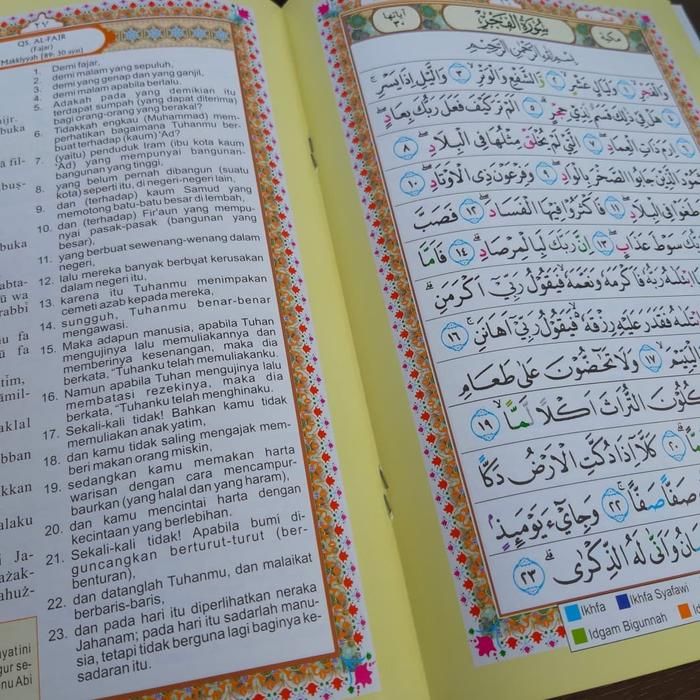 ٢٧
QS. AL-FAJR
(Fajar)
Makkiyyah (89: 30 ayat)
1. Demi fajar,
2. demi malam yang sepuluh,
3. demi yang genap dan yang ganjil,
4. demi malam apabila berlalu.
5. Adakah pada yang demikian itu
terdapat sumpah (yang dapat diterima)
bagi orang-orang yang berakal?
6. Tidakkah engkau (Muhammad) mem-
perhatikan bagaimana Tuhanmu ber-
buat terhadap (kaum) 'Ad?
7. (yaitu) penduduk Iram (ibu kota kaum
'Ad) yang mempunyai bangunan-
bangunan yang tinggi,
8. yang belum pernah dibangun (suatu
kota) seperti itu, di negeri-negeri lain,
9. dan (terhadap) kaum Samud yang
memotong batu-batu besar di lembah,
10. dan (terhadap) Fir'aun yang mempu-
nyai pasak-pasak (bangunan yang
besar),
11. yang berbuat sewenang-wenang dalam
negeri,
12. lalu mereka banyak berbuat kerusakan
dalam negeri itu,
13. karena itu Tuhanmu menimpakan
cemeti azab kepada mereka,
14. sungguh, Tuhanmu benar-benar
mengawasi.
15. Maka adapun manusia, apabila Tuhan
mengujinya lalu memuliakannya dan
memberinya kesenangan, maka dia
berkata, "Tuhanku telah memuliakanku.
16. Namun apabila Tuhan mengujinya lalu
membatasi rezekinya, maka dia
berkata, "Tuhanku telah menghinaku.
17. Sekali-kali tidak! Bahkan kamu tidak
memuliakan anak yatim,
18. dan kamu tidak saling mengajak mem-
beri makan orang miskin,
19. sedangkan kamu memakan harta
warisan dengan cara mencampur-
baurkan (yang halal dan yang haram),
20. dan kamu mencintai harta dengan
kecintaan yang berlebihan.
21. Sekali-kali tidak! Apabila bumi di-
guncangkan berturut-turut (ber-
benturan),
22. dan datanglah Tuhanmu, dan malaikat
berbaris-baris,
23. dan pada hari itu diperlihatkan neraka
Jahanam; pada hari itu sadarlah manu-
sia, tetapi tidak berguna lagi baginya ke-
sadaran itu.
آياتها ٣٠
سُورَةُ الْفَجْرِ
مكية
بِسْمِ اللهِ الرَّحْمٰنِ الرَّحِيْمِ
وَالْفَجْرِۙ ١ وَلَيَالٍ عَشْرٍۙ ٢ وَّالشَّفْعِ وَالْوَتْرِۙ ٣ وَالَّيْلِ اِذَا يَسْرِۚ
٤ هَلْ فِيْ ذٰلِكَ قَسَمٌ لِّذِيْ حِجْرٍۗ ٥ اَلَمْ تَرَ كَيْفَ فَعَلَ رَبُّكَ بِعَادٍۖ
٦ اِرَمَ ذَاتِ الْعِمَادِۖ ٧ الَّتِيْ لَمْ يُخْلَقْ مِثْلُهَا فِى الْبِلَادِۖ ٨
الَّذِيْنَ جَابُوا الصَّخْرَ بِالْوَادِۖ ٩ وَفِرْعَوْنَ ذِى الْاَوْتَادِۖ ١٠
طَغَوْا فِى الْبِلَادِۖ ١١ فَاَكْثَرُوْا فِيْهَا الْفَسَادَۖ ١٢ فَصَبَّ
سَوْطَ عَذَابٍۖ ١٣ اِنَّ رَبَّكَ لَبِالْمِرْصَادِۗ ١٤ فَاَمَّا
ابْتَلٰىهُ رَبُّهٗ فَاَكْرَمَهٗ وَنَعَّمَهٗۙ فَيَقُوْلُ رَبِّيْٓ اَكْرَمَنِۗ
فَقَدَرَ عَلَيْهِ رِزْقَهٗۙ فَيَقُوْلُ رَبِّيْٓ اَهَانَنِۚ ١٦
الْيَتِيْمَۙ ١٧ وَلَا تَحٰۤضُّوْنَ عَلٰى طَعَامِ
التُّرَاثَ اَكْلًا لَّمًّاۙ ١٩
كَلَّآ اِذَا دُكَّتِ الْاَرْضُ دَكًّا
صَفًّا صَفًّاۚ ٢٢ وَجِايْۤءَ يَوْمَىِٕذٍ
وَاَنّٰى لَهُ الذِّكْرٰىۗ ٢٣
Ikhfa Ikhfa Syafawi
Idgam Bigunnah